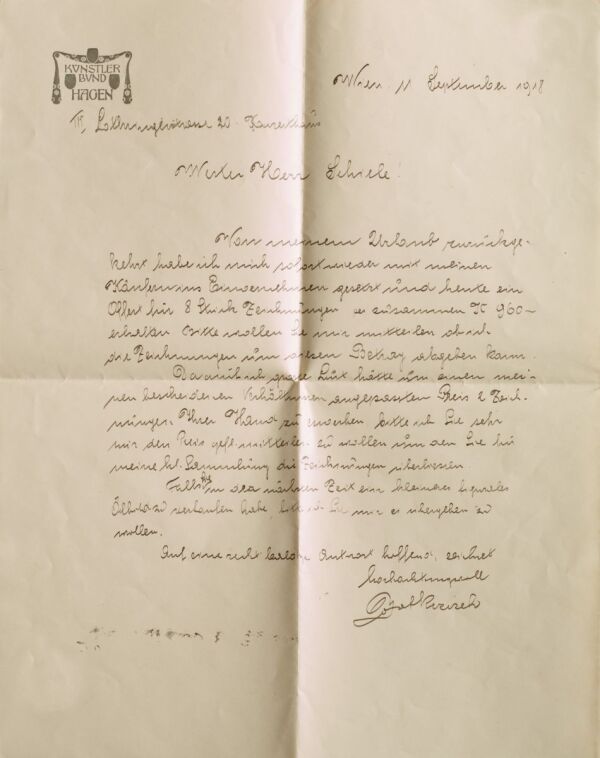 KÜNSTLER
BUND
HAGEN
Wien 11 September 1918
III, Lothringerstrasse 20. Konzerthaus
Werter Herr Schiele!
Von meinem Urlaub zurückge-
kehrt habe ich mich sofort wieder mit meinen
Käufer ins Einvernehmen gesetzt und heute ein
Offert für 8 Stück Zeichnungen zusammen K 960–
erhalten. Bitte wollen Sie mir mitteilen ob ich
die Zeichnungen um diesen Betrag abgeben kann.
Da auch ich grosse Lust hätte um einen mei-
nen bescheidenen Verhältnissen angepassten Preis 2 Zeich-
nungen Ihrer Hand zu erwerben bitte ich Sie sehr
mir den Preis gefl. mitteilen zu wollen um den Sie für
meine kl. Sammlung die Zeichnungen überliessen.
Falls Sie in der nächsten Zeit ein kleineres
Ölbild zu verkaufen habe bitte ich Sie mir es übergeben zu
wollen.
Auf eine recht baldige Antwort hoffend, zeichnet
hochachtungsvoll